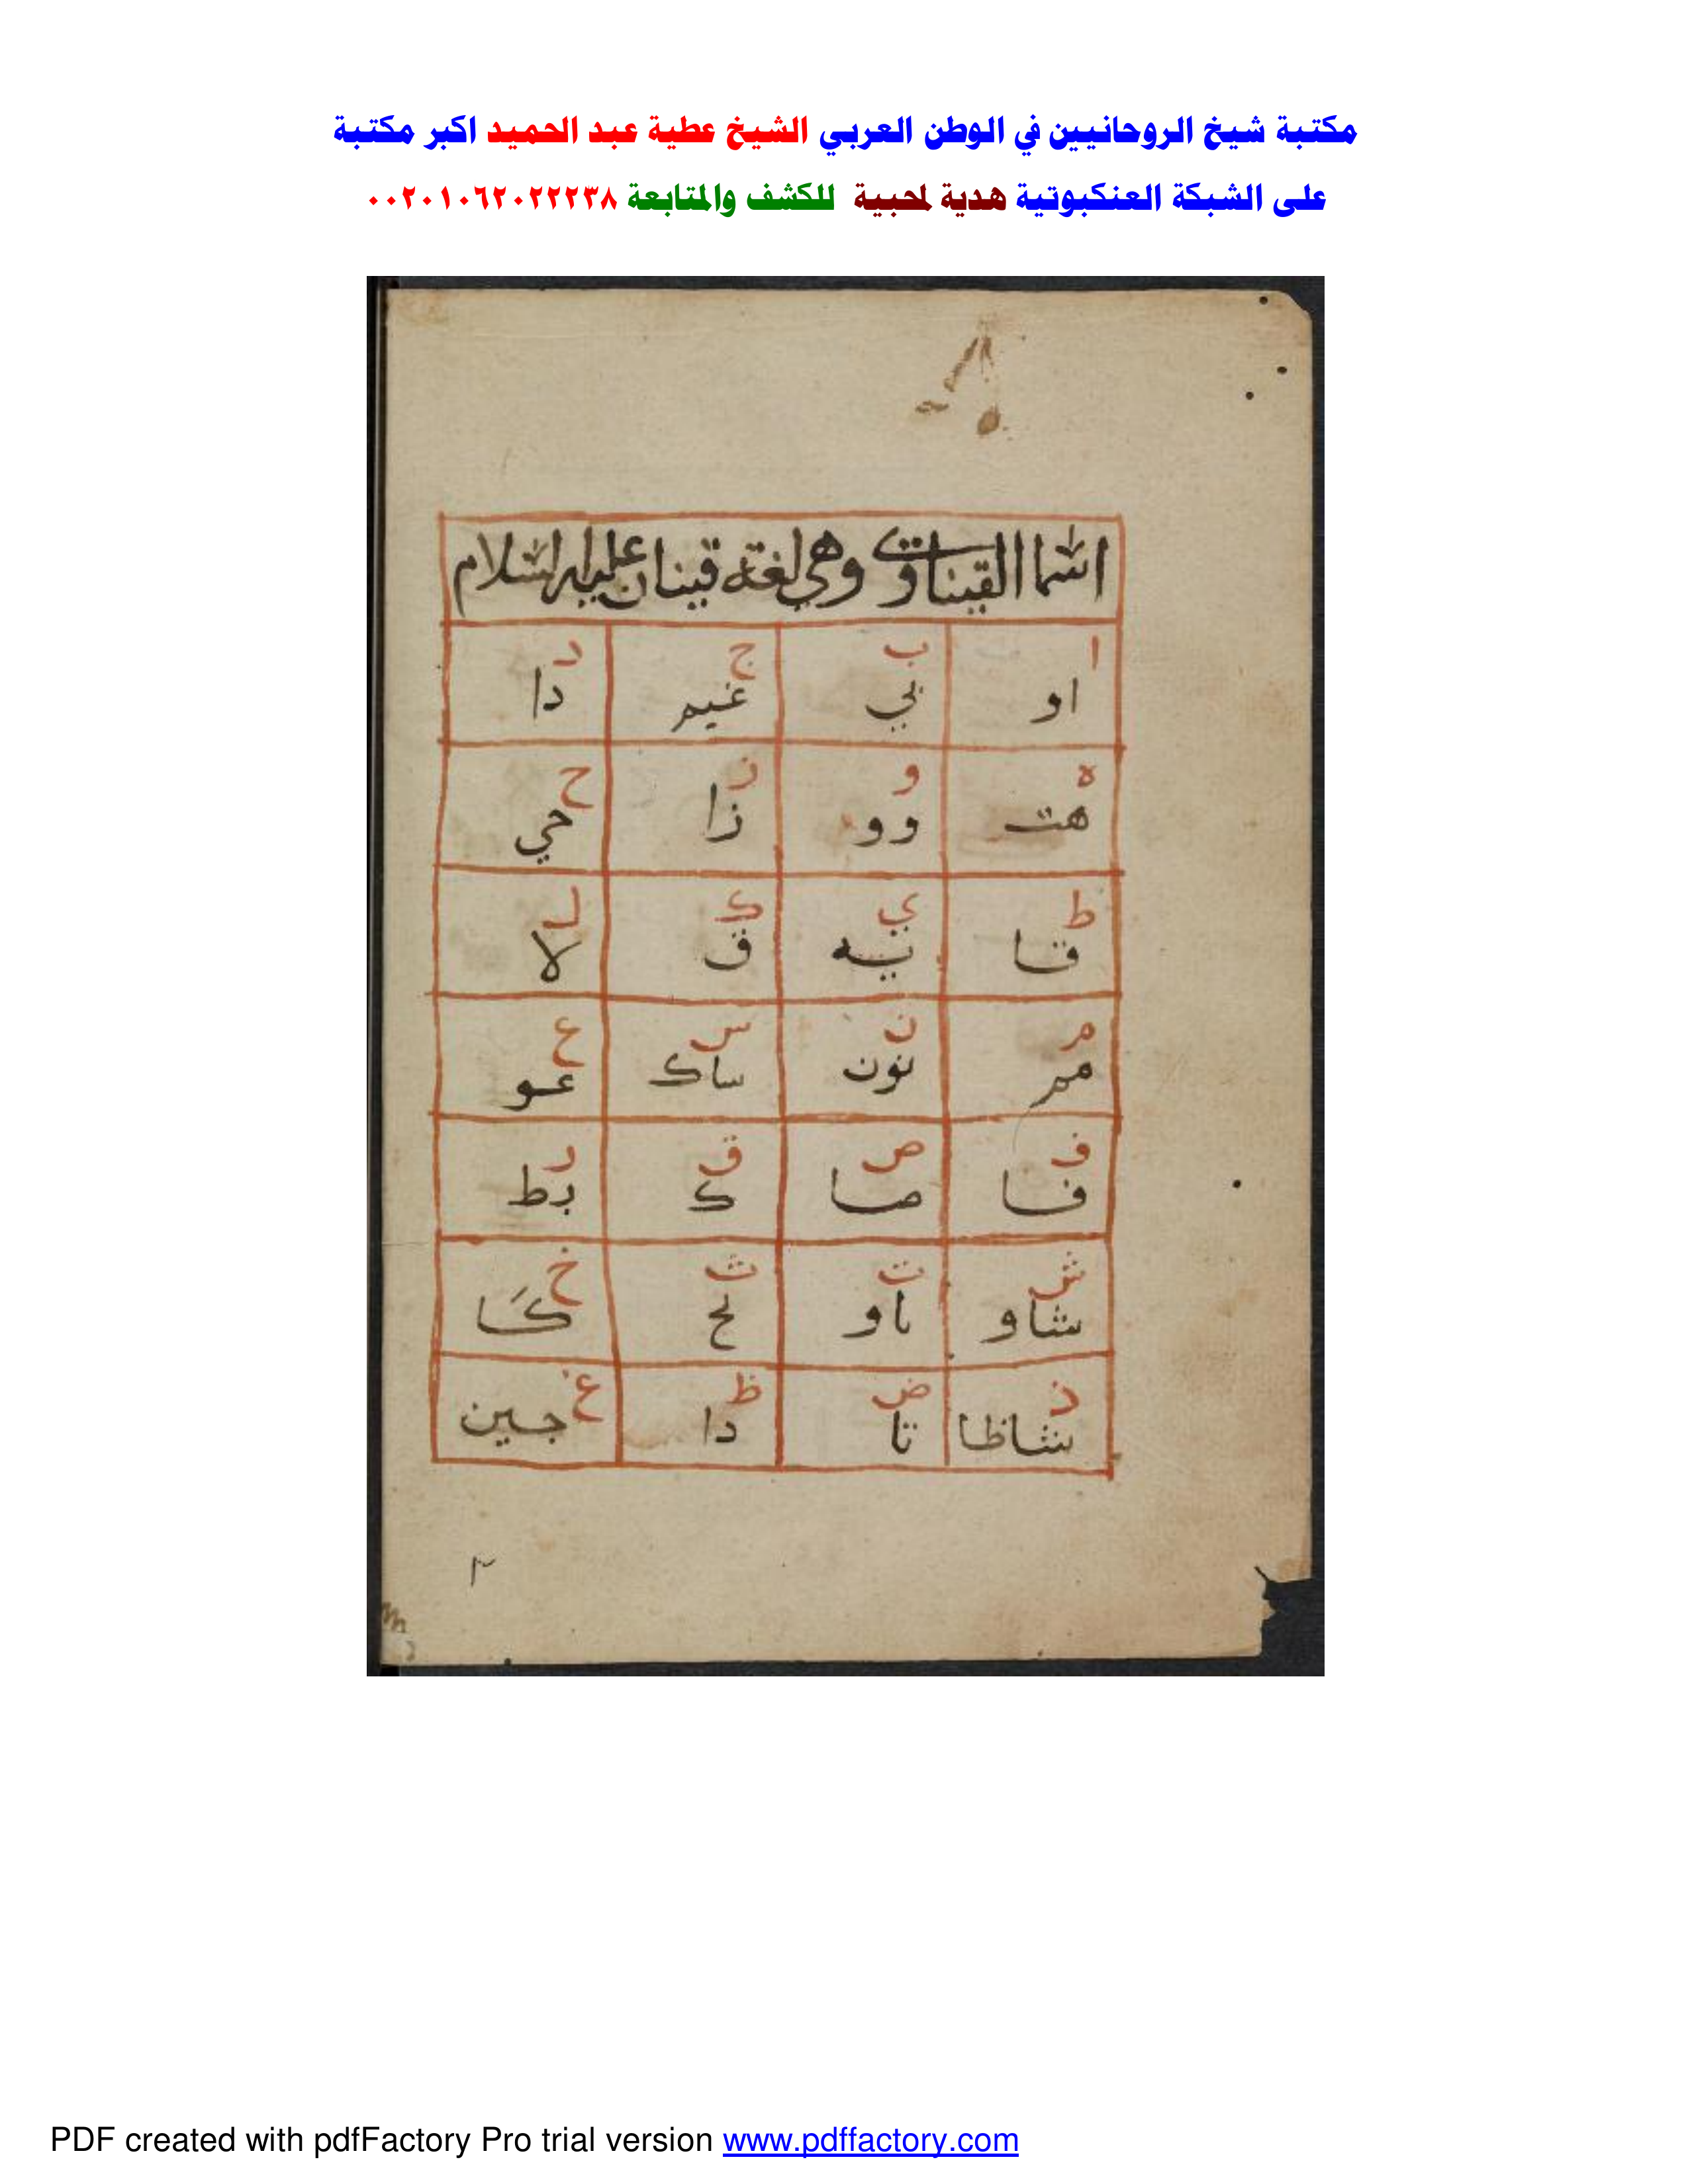 مكتبة شيخ الروحانيين في الوطن العربي الشيخ عطية عبد الحميد اكبر مكتبة
على الشبكة العنكبوتية هدية لمحبية للكشف والمتابعة ٠٠٢٠١٠٦٢٠٢٢٢٣٨
اسما القيناوت وهي لغة قينان عليه السلام
ا ب ج د
او بي غيم دا
ه و ز ح
هت وو زا حي
ط ي ك ل
قا ييه ق لا
م ن س ع
مم نون ساك عو
ف ص ق ر
فا صا ك رط
ش ت ث خ
شاو تاو لح كا
ذ ض ظ غ
شاظا تا دا جين
٣
PDF created with pdfFactory Pro trial version www.pdffactory.com